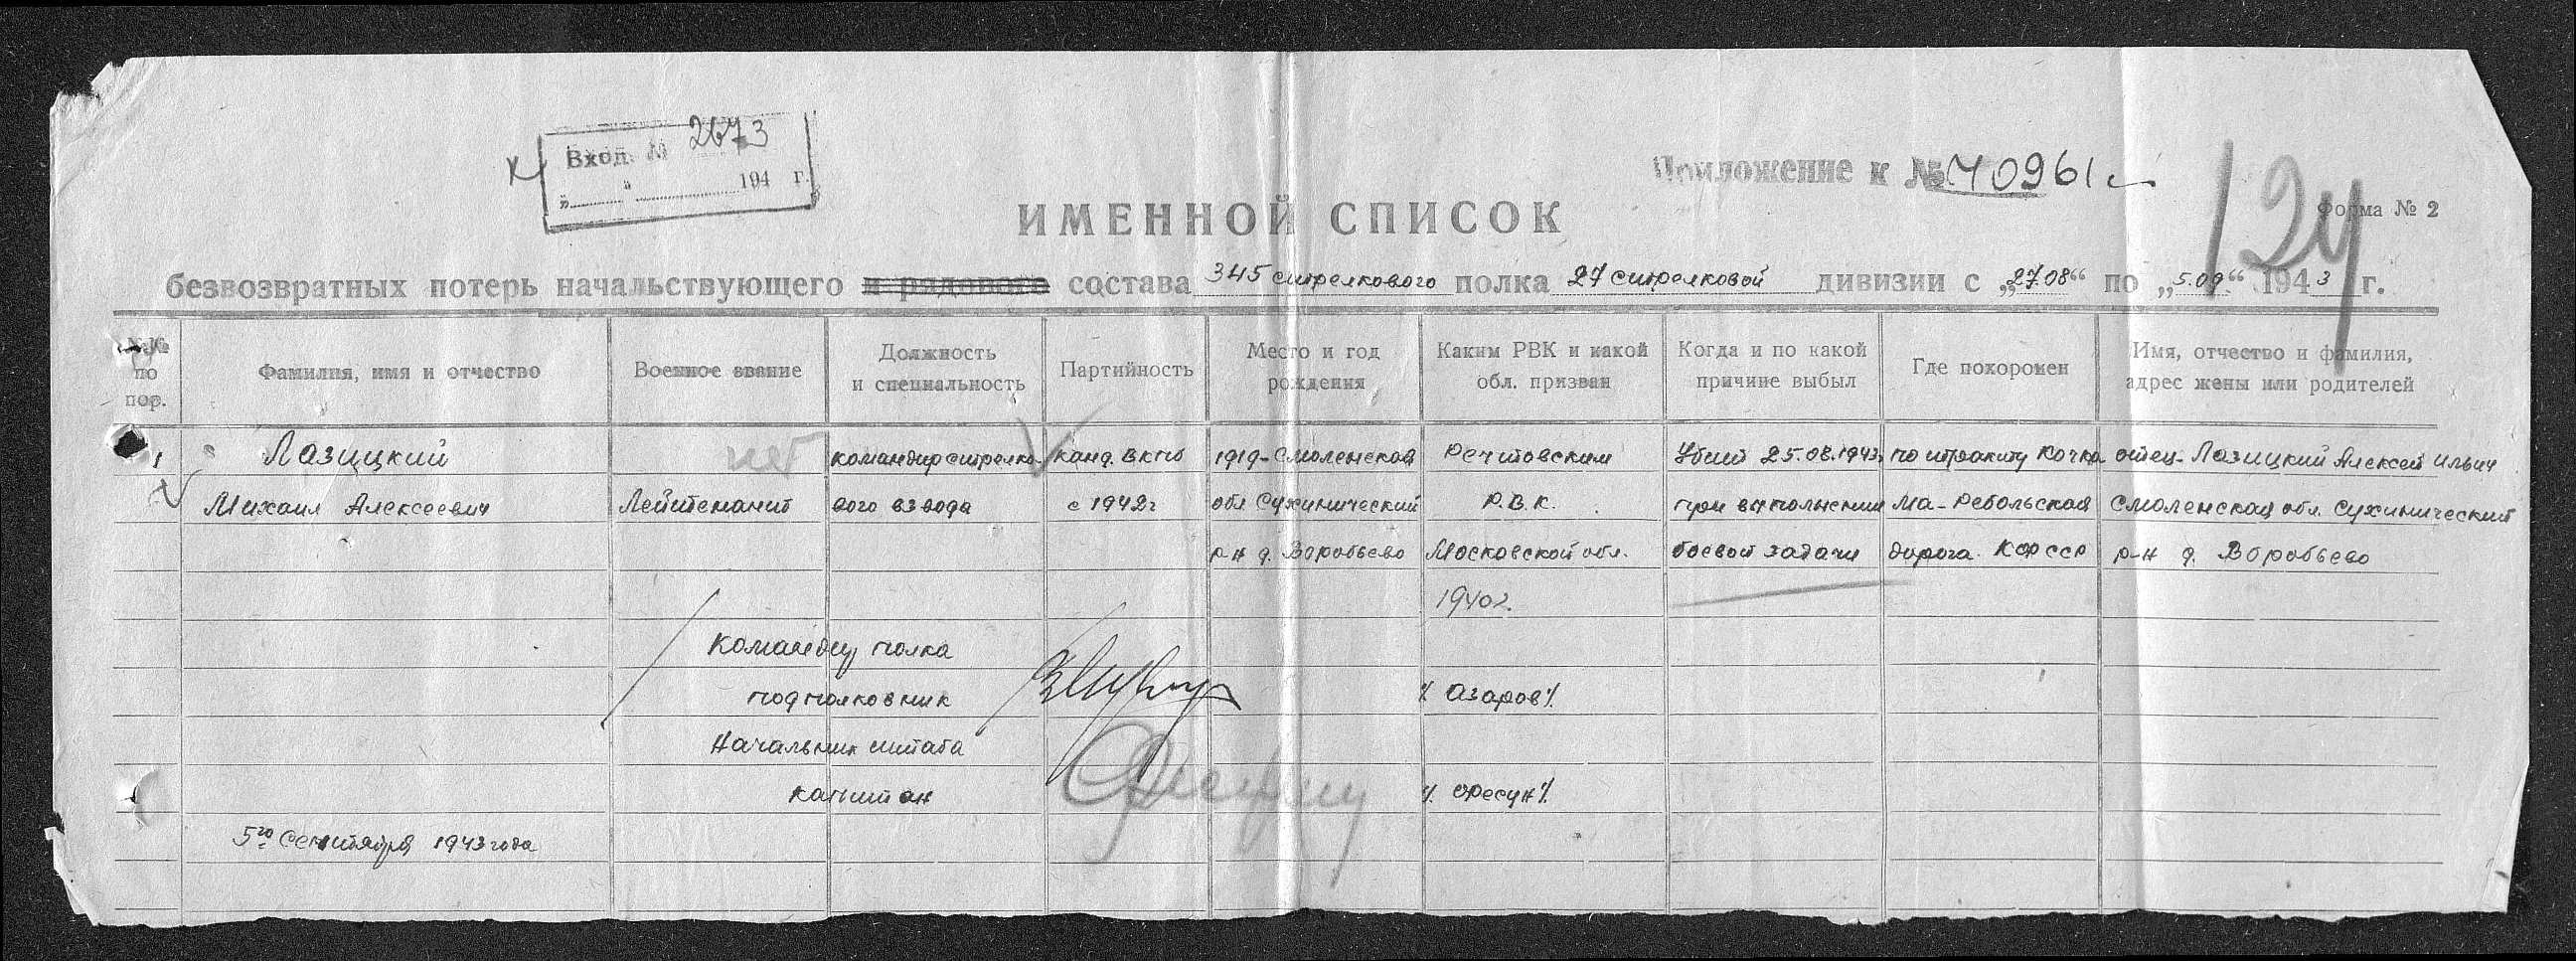 Вход. № 2673
„ “ 194 г.
Приложение к № 70961с
124
Форма № 2
ИМЕННОЙ СПИСОК
безвозвратных потерь начальствующего и рядового состава 345 стрелкового полка 27 стрелковой дивизии с „27.08“ по „5.09“ 1943 г.
№№ по пор.
Фамилия, имя и отчество
Военное звание
Должность
и специальность
Партийность
Место и год
рождения
Каким РВК и какой
обл. призван
Когда и по какой
причине выбыл
Где похоронен
Имя, отчество и фамилия,
адрес жены или родителей
1
Лазицкий
Михаил Алексеевич
Лейтенант
командир стрелко-
вого взвода
канд. ВКПб
с 1942г
1919 - Смоленская
обл Сухинический
р-н д. Воробьево
Р.В.К.
Московской обл.
1940г.
Убит 25.08.1943г
при выполнении
боевой задачи
по тракту Кочко
ма - Ребольская
дорога. КФССР
отец - Лазицкий Алексей Ильич
Смоленская обл. Сухинический
р-н д. Воробьево
Командир полка
подполковник
/Азаров/
Начальник штаба
капитан
/Фесун/
5го Сентября 1943 года